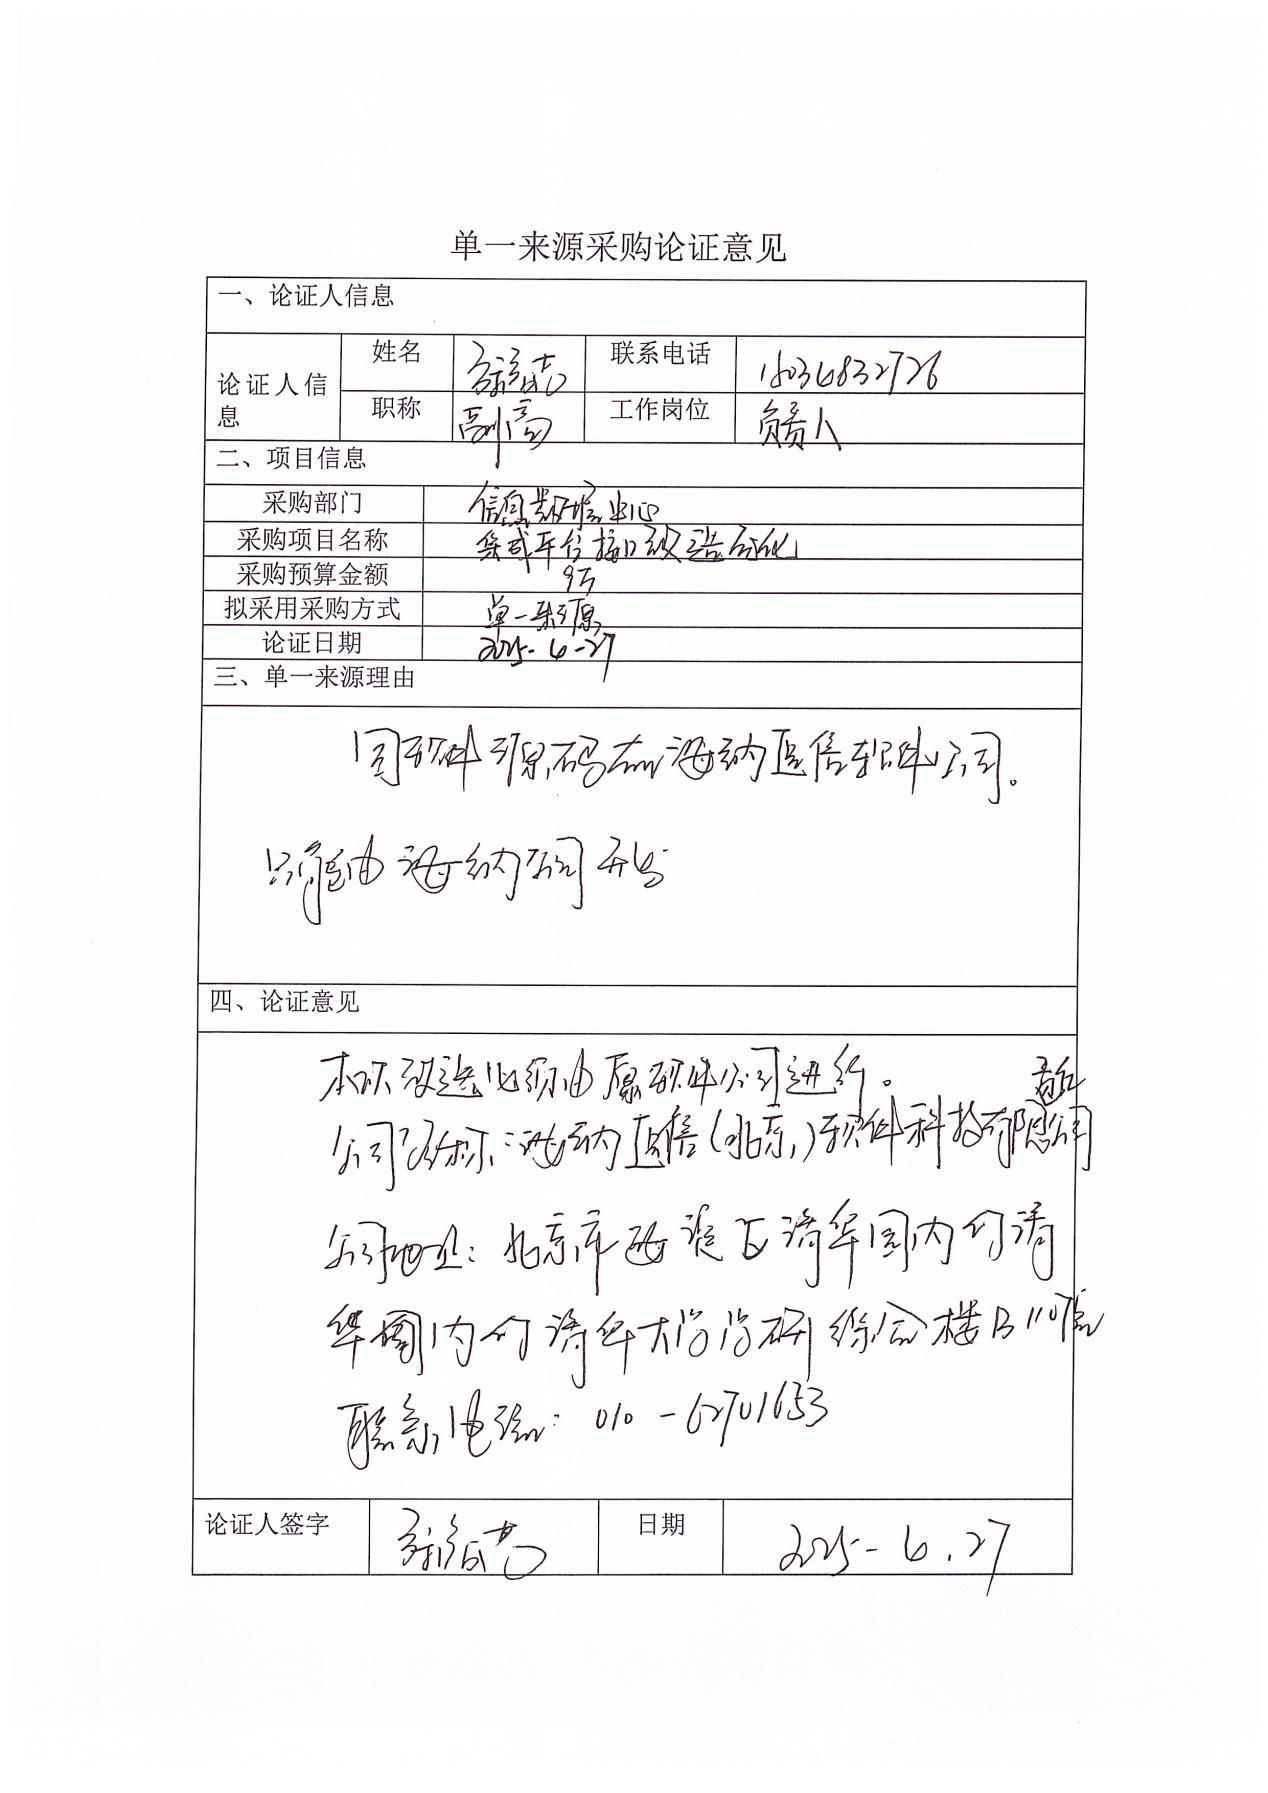 单一来源采购论证意见
一、论证人信息
论证人信息
姓名
联系电话 18036832726
职称 副高
工作岗位 负责人
二、项目信息
采购部门 信息数据中心
采购项目名称 集成平台接口改造
采购预算金额 9万
拟采用采购方式 单一来源
论证日期 2025-6-27
三、单一来源理由
因软件源码在海纳医信软件公司。
只能由海纳公司开发
四、论证意见
本次改造必须由原软件公司进行。
公司名称:海纳医信(北京)软件科技有限责任公司
公司地址:北京市海淀区清华园内的清
华园内的清华大学学研综合楼B1107室
联系电话:010-62701653
论证人签字
日期 2025-6.27